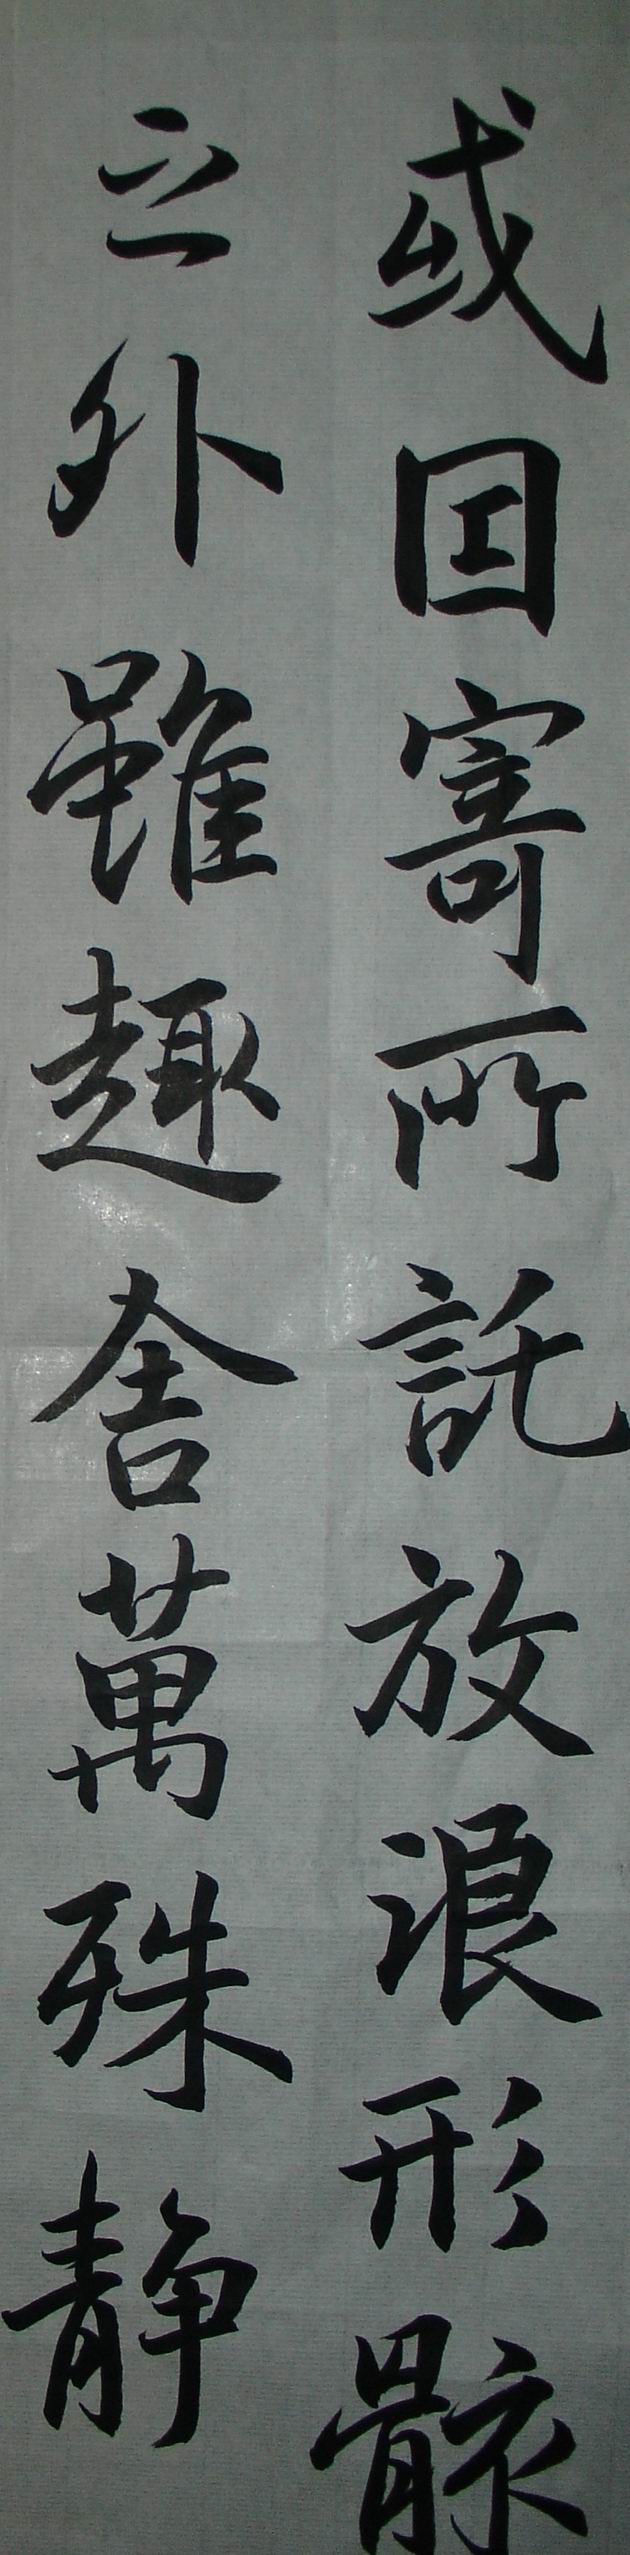 或因寄所託放浪形骸
之外雖趣舍萬殊静